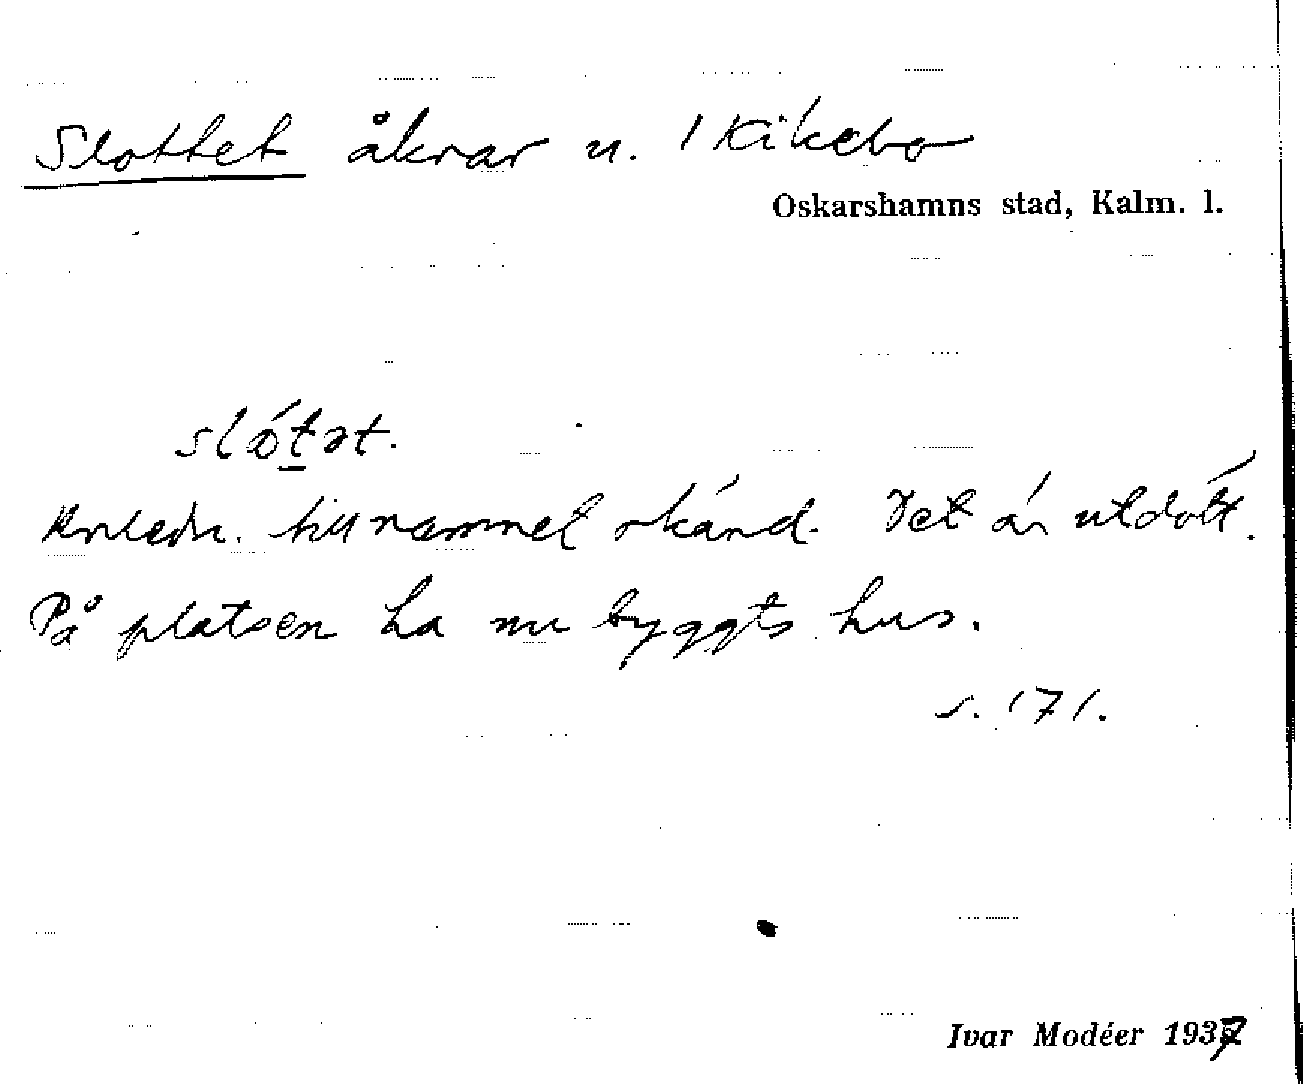 Slottet åkrar u. 1 Kikebo
Oskarshamns stad, Kalm. l.
slǿt̠ət.
Anledn. till namnet okänd. Det är utdött.
På platsen ha nu byggts hus.
s. 171.
Ivar Modéer 1937